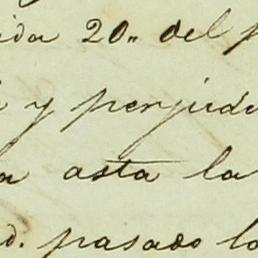 ida 20" del p
y perjudi
a asta la
d. pasado lo